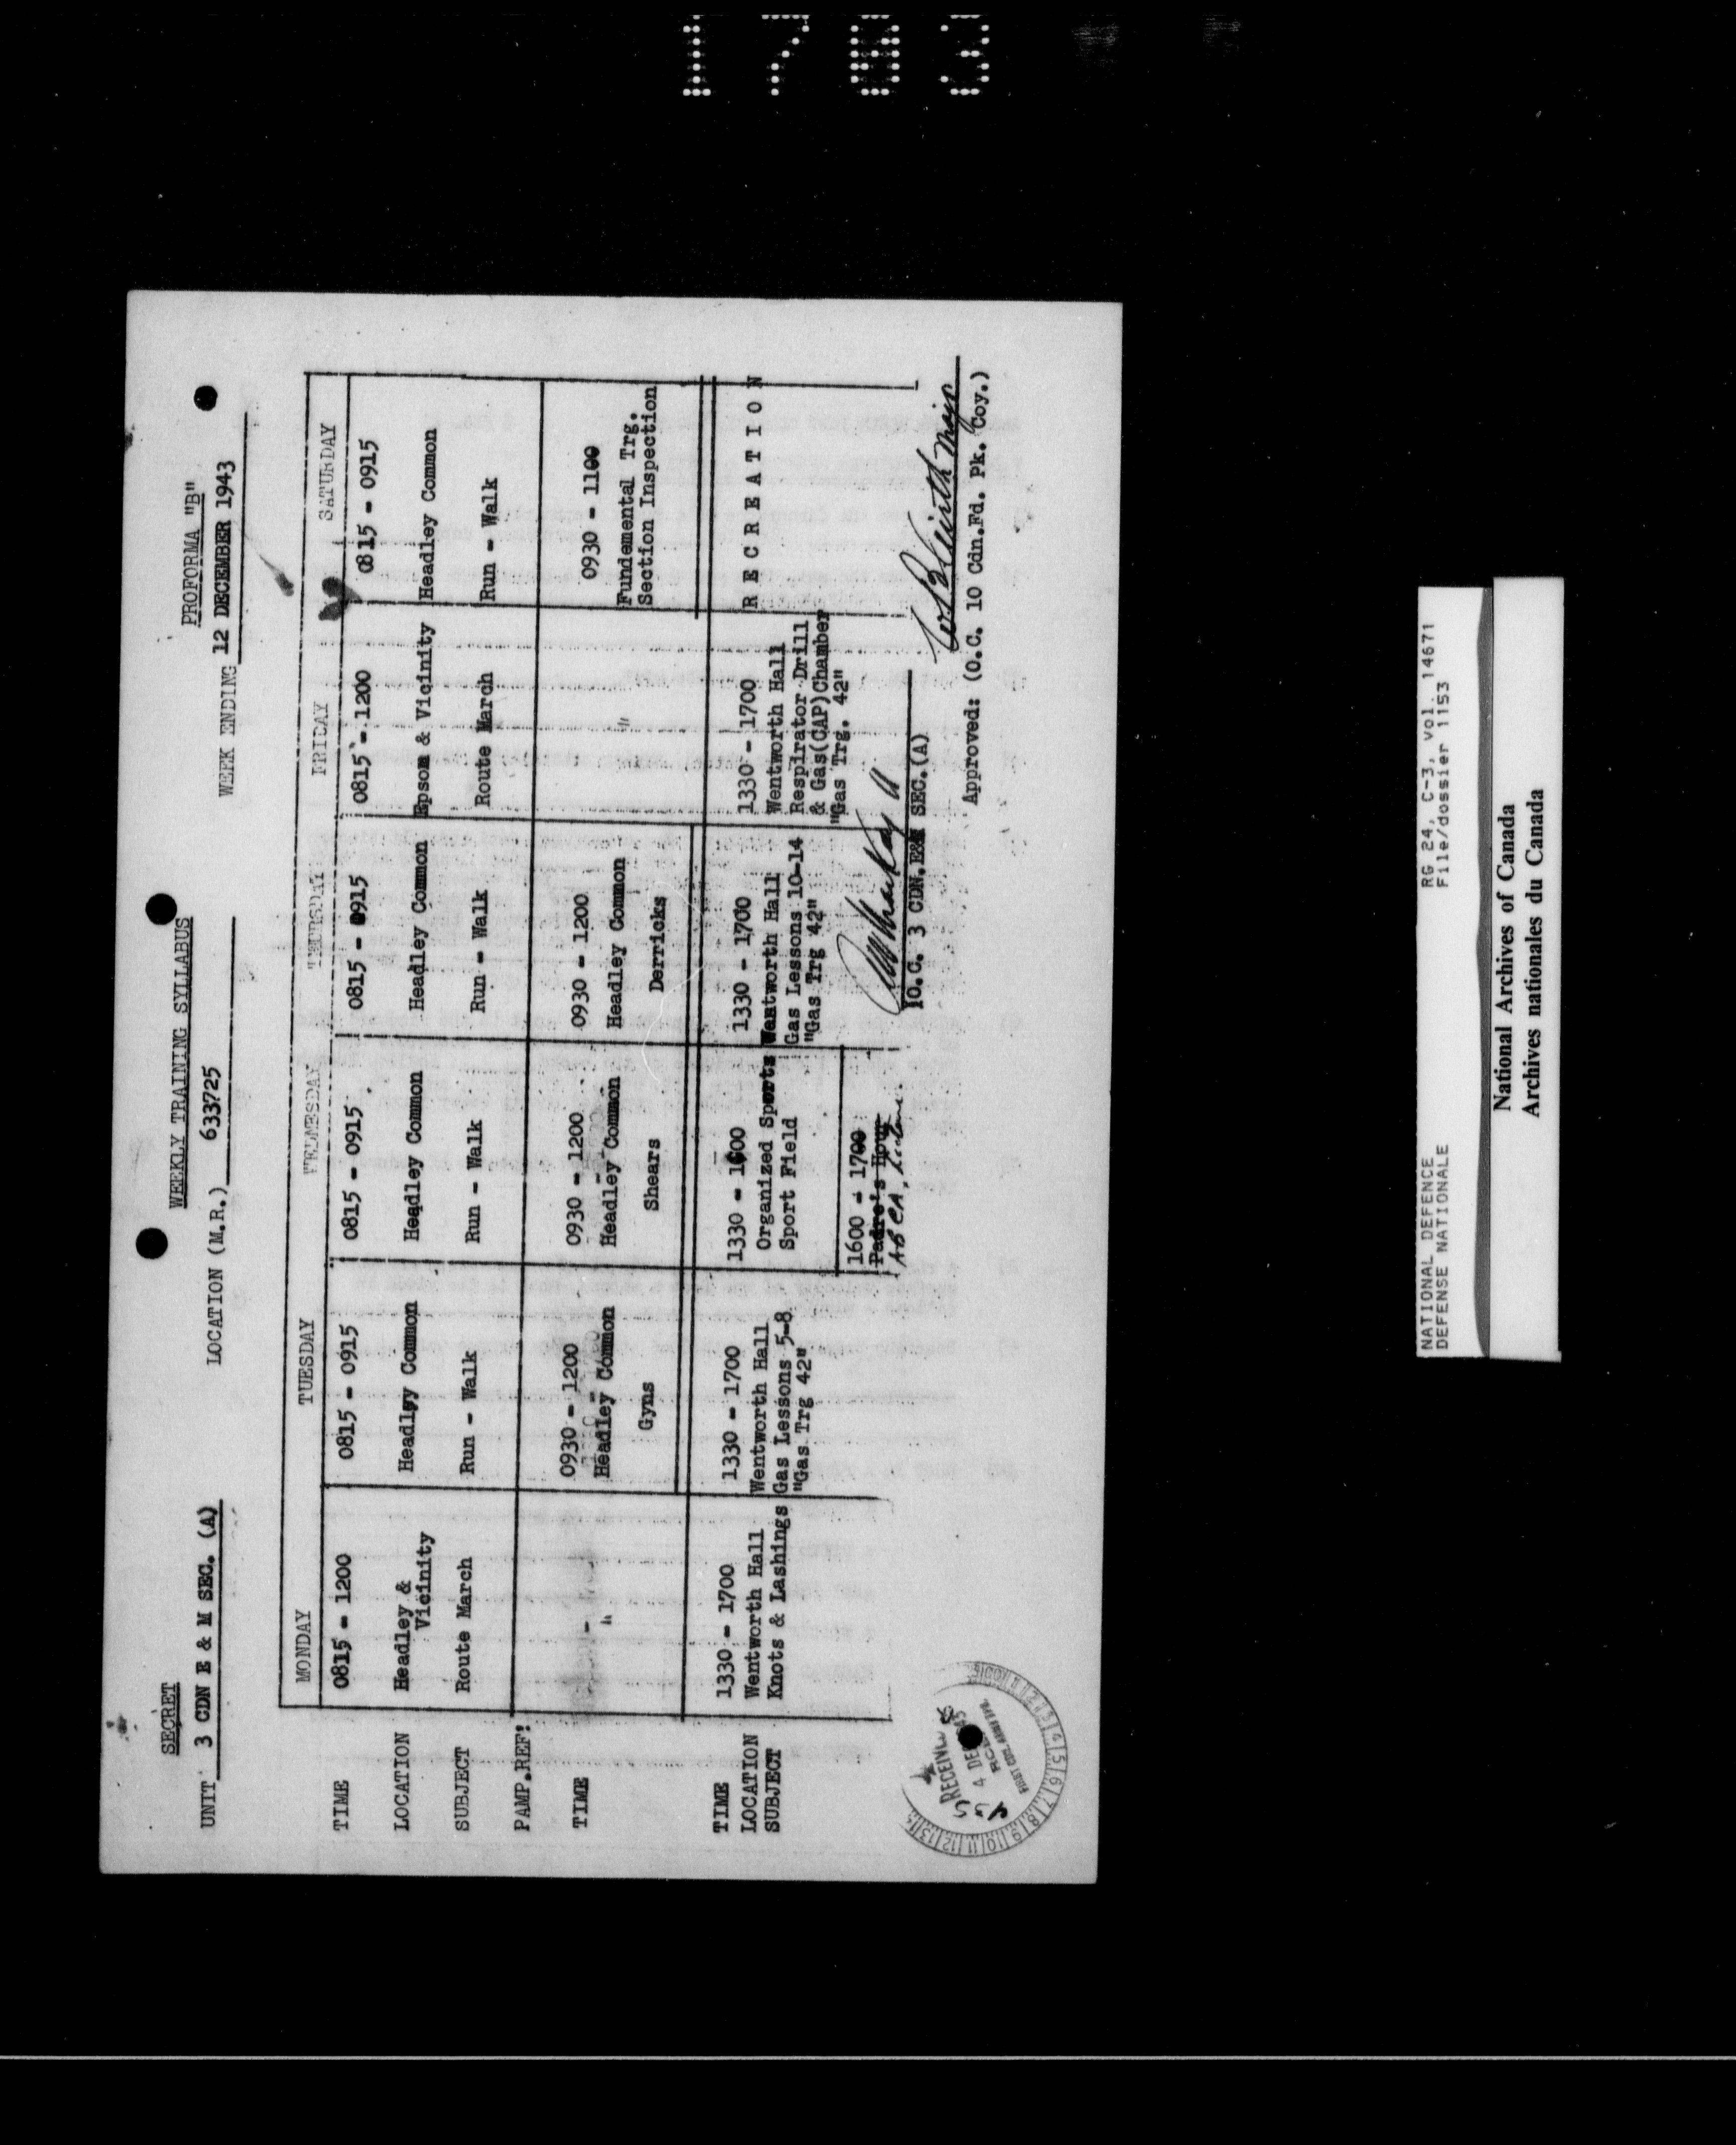 1783
SECRET
WEEKLY TRAINING SYLLABUS
PROFORMA "B"
UNIT 3 CDN E & M SEC. (A)
LOCATION (M.R.) 633725
WEEK ENDING 12 DECEMBER 1943
MONDAY TUESDAY WEDNESDAY THURSDAY FRIDAY SATURDAY
TIME 0815 - 1200 0815 - 0915 0815 - 0915 0815 - 0915 0815 - 1200 0815 - 0915
LOCATION Headley & Vicinity Headley Common Headley Common Headley Common Epsom & Vicinity Headley Common
SUBJECT Route March Run - Walk Run - Walk Run - Walk Route March Run - Walk
PAMP.REF:
TIME " 0930 - 1200 0930 - 1200 0930 - 1200 " 0930 - 1100
Headley Common Headley Common Headley Common Fundemental Trg.
Gyns Shears Derricks Section Inspection
TIME 1330 - 1700 1330 - 1700 1330 - 1600 1330 - 1700 1330 - 1700 RECREATION
LOCATION Wentworth Hall Wentworth Hall Organized Sports Wentworth Hall Wentworth Hall
SUBJECT Knots & Lashings Gas Lessons 5-8 Sport Field Gas Lessons 10-14 Respirator Drill
"Gas Trg 42" "Gas Trg 42" & Gas(CAP)Chamber
"Gas Trg. 42"
1600 - 1700
Padre's Hour
ABCA,
O.C. 3 CDN.E&M SEC.(A)
Major
Approved: (O.C. 10 Cdn.Fd. Pk. Coy.)
RECEIVED
4 DEC
NATIONAL DEFENCE RG 24, C-3, vol. 14671
DEFENSE NATIONALE File/dossier 1153
National Archives of Canada
Archives nationales du Canada